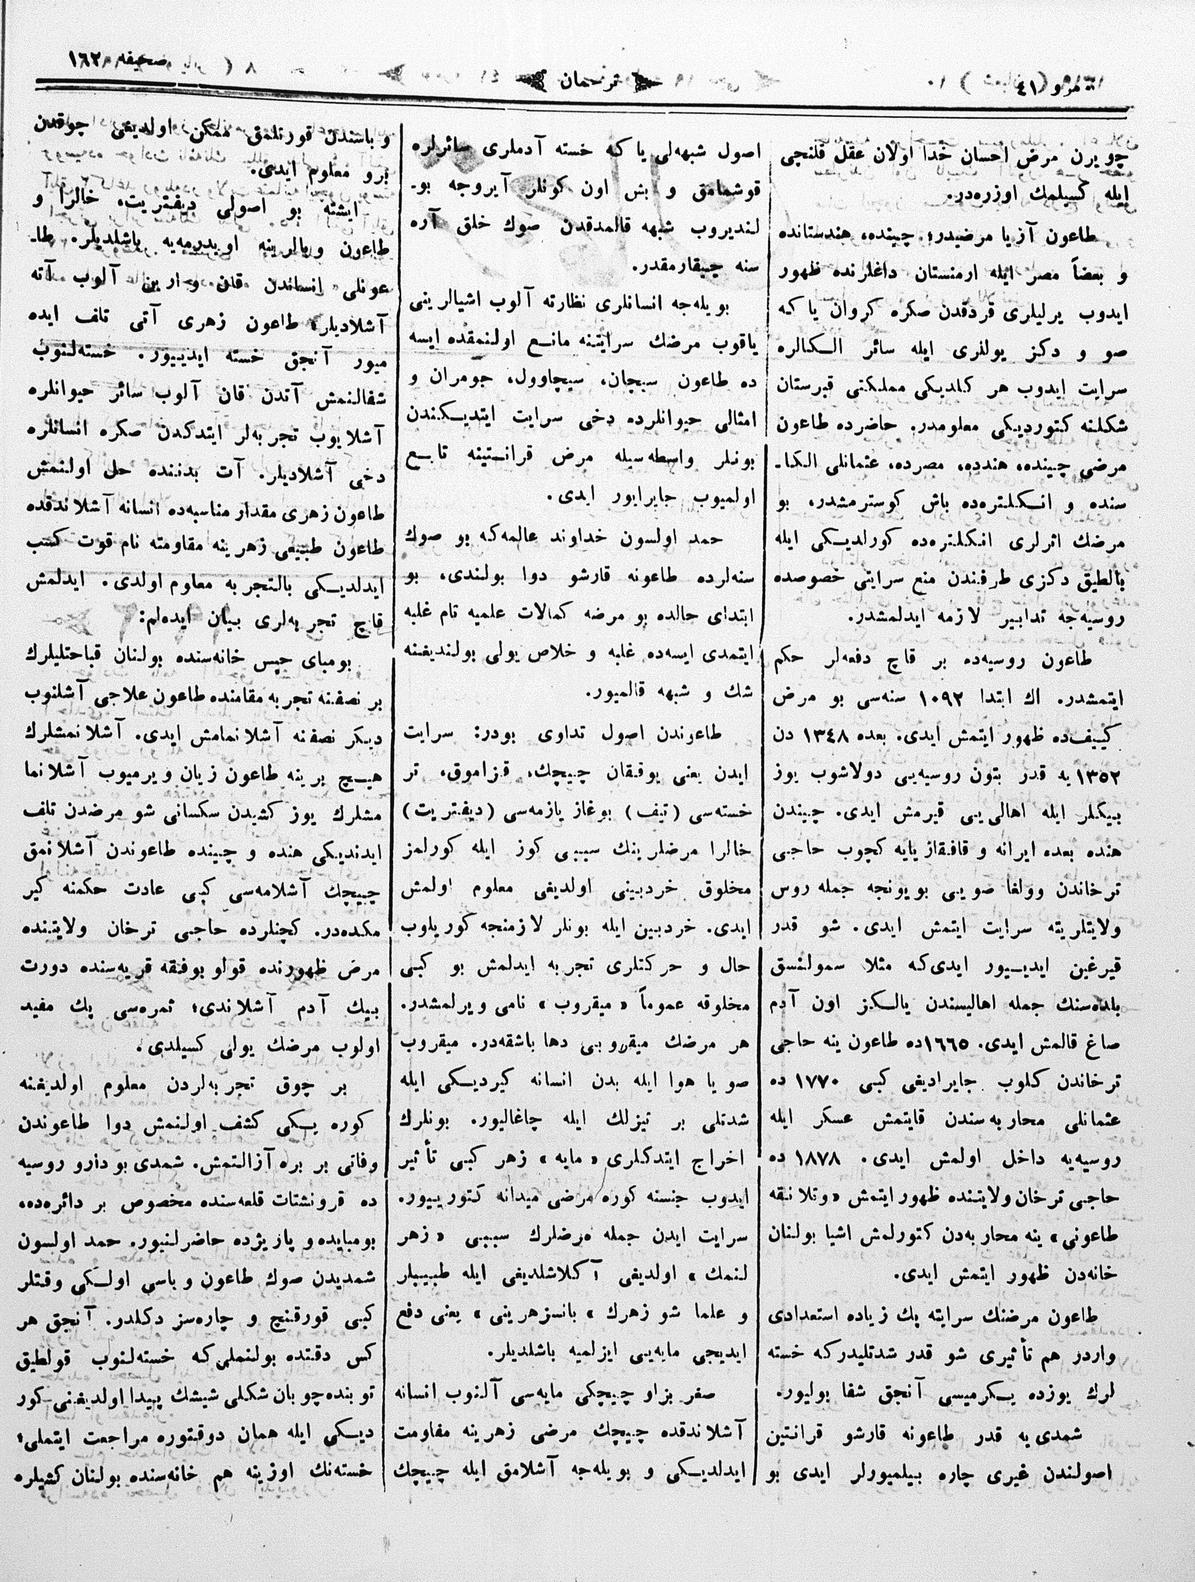 نمرو ٤١
ترجمان
صحیفه ١٦٢
چویرن مرض احسان خدا اولان عقل قلنجی
ایله کسیلمك اوزره‌در.
طاعون آزیا مرضیدر؛ چینده، هندستانده
و بعضاً مصر ایله ارمنستان داغلرنده ظهور
ایدوب یرلیلری قردقدن صکره کروان یا که
صو و دکز یوللری ایله سائر الکالره
سرایت ایدوب هر کلدیکی مملکتی قبرستان
شکلنه کتوردیکی معلومدر. حاضرده طاعون
مرضی چینده، هندده، مصرده، عثمانلی الکا-
سنده و انکلتره‌ده باش کوسترمشدر، بو
مرضك اثرلری انکلتره‌ده کورلدیکی ایله
بالطیق دکزی طرفندن منع سرایتی خصوصده
روسیه‌جه تدابیر لازمه ایدلمشدر.
طاعون روسیه‌ده بر قاچ دفعه‌لر حکم
ایتمشدر. اك ابتدا ١٠٩٢ سنه‌سی بو مرض
کییف‌ده ظهور ایتمش ایدی. بعده ١٣٤٨ دن
١٣٥٢یه قدر بتون روسیه‌یی دولاشوب یوز
بیکلر ایله اهالی‌یی قیرمش ایدی. چیندن
هنده بعده ایرانه و قافقاز یایه کچوب حاجی
ترخاندن وولغا صویی بویونجه جمله روس
ولایتلرینه سرایت ایتمش ایدی. شو قدر
قیرغین ایدییور ایدی‌که مثلا سمولنسق
بلده‌سنك جمله اهالیسندن یالکز اون آدم
صاغ قالمش ایدی. ١٦٦٥ده طاعون ینه حاجی
ترخاندن کلوب جایرادیغی کبی ١٧٧٠ ده
عثمانلی محاربه‌سندن قایتمش عسکر ایله
روسیه‌یه داخل اولمش ایدی. ١٨٧٨ ده
حاجی ترخان ولایتنده ظهور ایتمش «وتلانقه
طاعونی» ینه محاربه‌دن کتورلمش اشیا بولنان
خانه‌دن ظهور ایتمش ایدی.
طاعون مرضنك سرایته پك زیاده استعدادی
واردر هم تأثیری شو قدر شدتلیدرکه خسته
لرك یوزده یکرمیسی آنجق شفا بولیور.
شمدی‌یه قدر طاعونه قارشو قرانتین
اصولندن غیری چاره بیلمیورلر ایدی بو
اصول شبهه‌لی یا که خسته آدملری سائرلره
قوشمامق و بش اون کونلر آیروجه بو-
لندیروب شبهه قالمدقدن صوك خلق آره
سنه چیقارمقدر.
بویله‌جه انسانلری نظارته آلوب اشیالرینی
یاقوب مرضك سرایتنه مانع اولنمقده ایسه
ده طاعون سبچان، سیچاوول، جومران و
امثالی حیوانلرده دخی سرایت ایتدیکندن
بونلر واسطه‌سیله مرض قرانتینه تابع
اولمیوب جایرایور ایدی.
حمد اولسون خداوند عالمه‌که بو صوك
سنه‌لرده طاعونه قارشو دوا بولندی، بو
ابتدای حالده بو مرضه کمالات علمیه تام غلبه
ایتمدی ایسه‌ده غلبه و خلاص یولی بولندیغنه
شك و شبهه قالمیور.
طاعوندن اصول تداوی بودر: سرایت
ایدن یعنی یوقیقان چیچك، قزاموق، تر
خسته‌سی (تیف) بوغاز یازمه‌سی (دیفتریت)
خالرا مرضلرینك سببی کوز ایله کورلمز
مخلوق خردبینی اولدیغی معلوم اولمش
ایدی. خردبین ایله بونلر لازمنجه کوریلوب
حال و حرکتلری تجربه ایدلمش بو کبی
مخلوقه عموماً «میقروب» نامی ویرلمشدر.
هر مرضك میقروبی دها باشقه‌در. میقروب
صو یا هوا ایله بدن انسانه کیردیکی ایله
شدتلی بر تیزلك ایله چاغالیور. بونلرك
اخراج ایتدکلری «مایه» زهر کبی تأثیر
ایدوب جنسنه کوره مرضی میدانه کتورییور.
سرایت ایدن جمله مرضلرك سببی «زهر
لنمك» اولدیغی آکلاشلدیغی ایله طبیبلر
و علما شو زهرك «پانزهرینی» یعنی دفع
ایدیجی مایه‌یی ایزلمیه باشلدیلر.
صغر بزاو چیچکی مایه‌سی آلنوب انسانه
آشلاندقده چیچك مرضی زهرینه مقاومت
ایدلدیکی و بویله‌جه آشلامق ایله چیچك
وباسندن قورتلمق ممکن اولدیغی چوقدن
برو معلوم ایدی.
ایشته بو اصولی دیفتریت، خالرا و
طاعون وبالرینه اویدرمه‌یه باشلدیلر. طا-
عونلی انساندن قان و ارین آلوب آته
آشلادیلر؛ طاعون زهری آتی تلف ایده
میور آنجق خسته ایدییور. خسته‌لنوب
شفالنمش آتدن قان آلوب سائر حیوانلره
آشلایوب تجربه‌لر ایتدکدن صکره انسانلره
دخی آشلادیلر. آت بدننده حل اولنمش
طاعون زهری مقدار مناسبه‌ده انسانه آشلاندقده
طاعون طبیعی زهرینه مقاومته تام قوت کسب
ایدلدیکی بالتجربه معلوم اولدی. ایدلمش
قاچ تجربه‌لری بیان ایده‌لم:
بومبای حپس خانه‌سنده بولنان قباحتلیلرك
بر نصفنه تجربه مقامنده طاعون علاجی آشلنوب
دیکر نصفنه آشلانمامش ایدی. آشلانمشلرك
هیچ برینه طاعون زیان ویرمیوب آشلانما
مشلرك یوز کشیدن سکسانی شو مرضدن تلف
ایدندیکی هنده و چینده طاعوندن آشلانمق
چیچك آشلامه‌سی کبی عادت حکمنه کیر
مکده‌در. کچنلرده حاجی ترخان ولایتنده
مرض ظهورنده قولوبوفقه قریه‌سنده دورت
بیك آدم آشلاندی؛ ثمره‌سی پك مفید
اولوب مرضك یولی کسیلدی.
بر چوق تجربه‌لردن معلوم اولدیغنه
کوره یکی کشف اولنمش دوا طاعوندن
وفاتی بر بره آزالتمش. شمدی بو دارو روسیه
ده قرونشتات قلعه‌سنده مخصوص بر دائره‌ده،
بومبایده و پاریژده حاضرلنیور. حمد اولسون
شمدیدن صوك طاعون وباسی اولکی وقتلر
کبی قورقنچ و چاره‌سز دکلدر. آنجق هر
کس دقتده بولنملی‌که خسته‌لنوب قولطیق
توبنده چوبان شکلی شیشك پیدا اولدیغنی کور
دیکی ایله همان دوقتوره مراجعت ایتملی؛
خسته‌نك اوزینه هم خانه‌سنده بولنان کشیلره